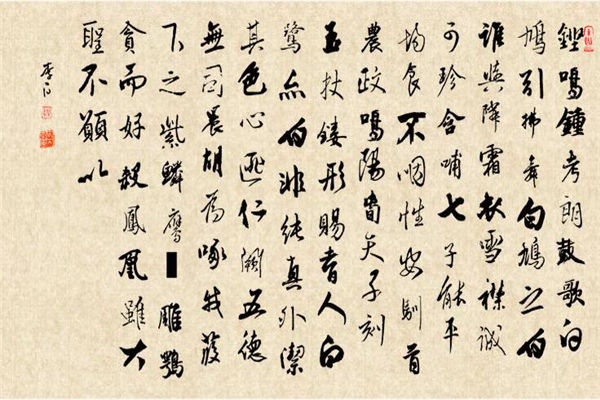 鏗鳴鐘考朗鼓歌白
鳩引拂舞白鳩之白
誰與降霜衣雪襟誠
可珍含哺七子能平
均食不咽性安馴首
農政鳴陽春天子刻
玉杖鏤形賜耆人白
鷺亦白非純真外潔
其色心匪仁闕五德
無司晨胡為啄我葭
下之紫鱗鷹■雕鶚
貪而好殺鳳凰雖大
聖不願以
李白